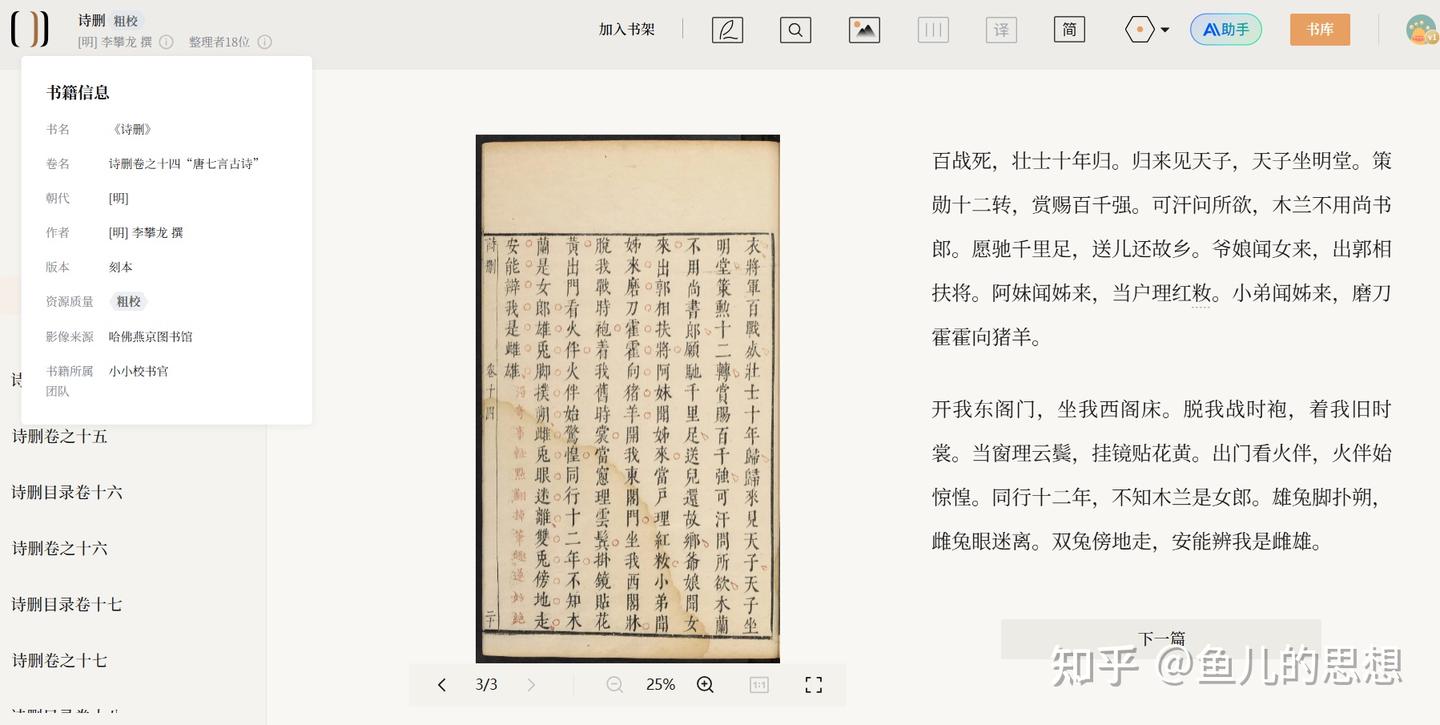 诗删 粗校
[明] 李攀龙 撰 整理者18位
加入书架
译
简
AI助手
书库
v1
书籍信息
书名 《诗删》
卷名 诗删卷之十四“唐七言古诗”
朝代 [明]
作者 [明] 李攀龙 撰
版本 刻本
资源质量 粗校
影像来源 哈佛燕京图书馆
书籍所属 小小校书官
团队
诗删卷之十五
诗删目录卷十六
诗删卷之十六
诗删目录卷十七
诗删卷之十七
衣將軍百戰死壯士十年歸歸來見天子天子坐
明堂策勲十二轉賞賜百千強可汗問所欲木蘭
不用尚書郎願馳千里足送兒還故鄉爺娘聞女
來出郭相扶將阿妹聞姊來當戶理紅敉小弟聞
姊來磨刀霍霍向猪羊開我東閣門坐我西閣牀
脫我戰時袍着我舊時裳當窻理雲鬂掛鏡貼花
黃出門看火伴火伴始驚惶同行十二年不知木
蘭是女郎雄兎脚撲朔雌兎眼迷離雙兎傍地走
安能辯我是雌雄
詩刪 卷十四 二十
3/3
25%
1:1
百战死，壮士十年归。归来见天子，天子坐明堂。策
勋十二转，赏赐百千强。可汗问所欲，木兰不用尚书
郎。愿驰千里足，送儿还故乡。爷娘闻女来，出郭相
扶将。阿妹闻姊来，当户理红敉。小弟闻姊来，磨刀
霍霍向猪羊。
开我东阁门，坐我西阁床。脱我战时袍，着我旧时
裳。当窗理云鬓，挂镜贴花黄。出门看火伴，火伴始
惊惶。同行十二年，不知木兰是女郎。雄兔脚扑朔，
雌兔眼迷离。双兔傍地走，安能辨我是雌雄。
下一篇
知乎 @鱼儿的思想